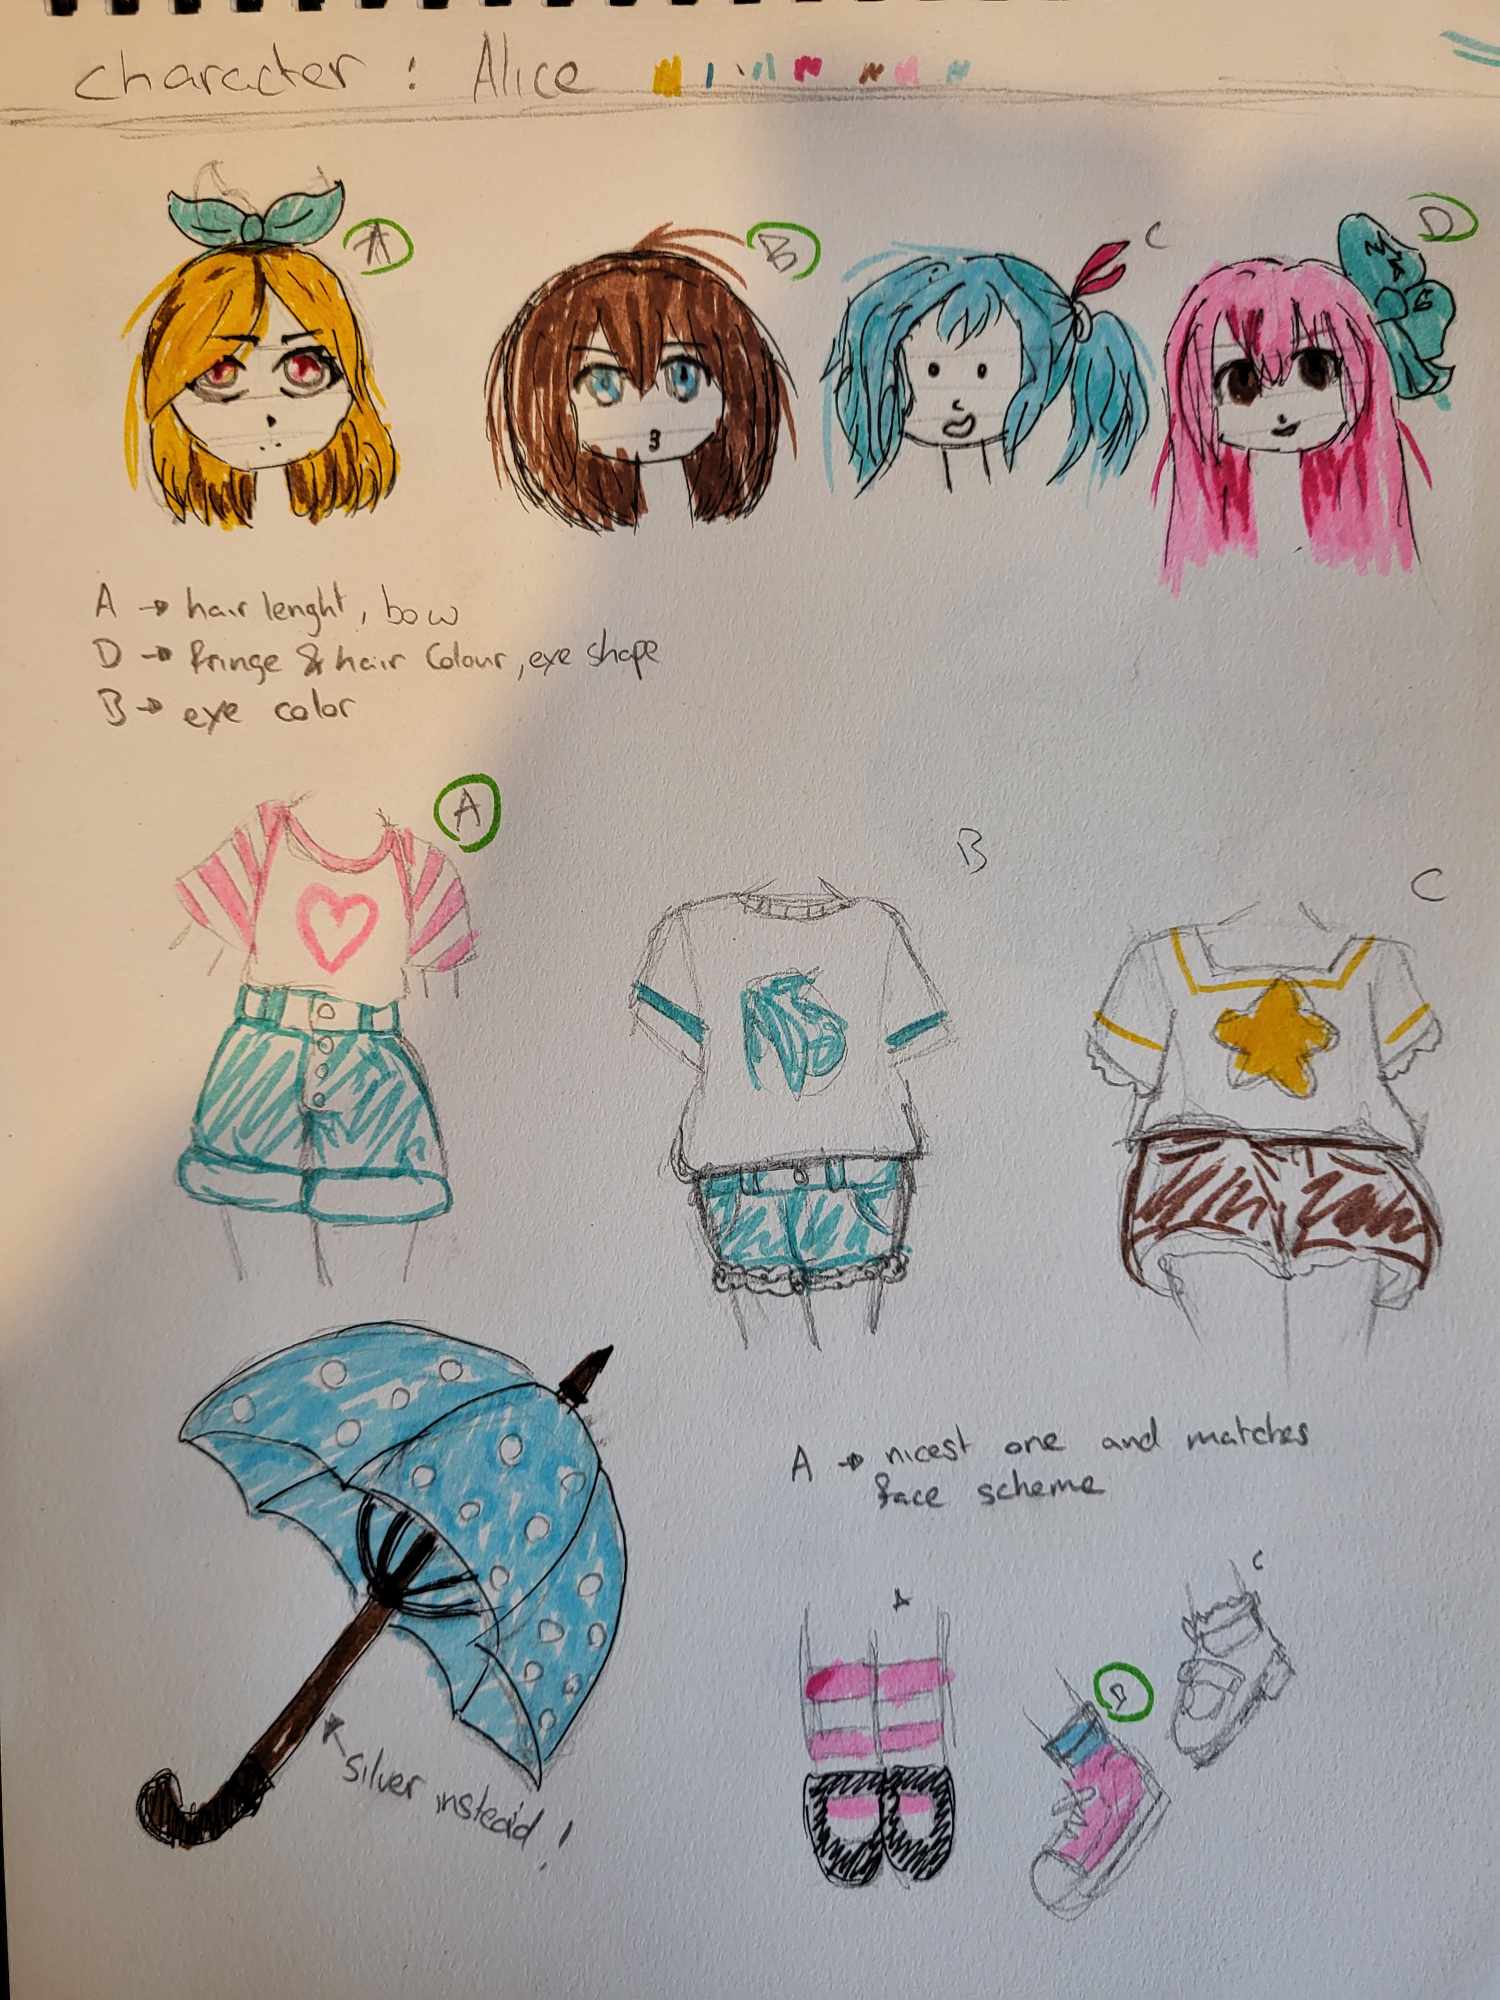 character : Alice
A
B
C
D
A → hair lenght, bow
D → fringe & hair colour, eye shape
B → eye color
A
B
C
A → nicest one and matches
face scheme
A
B
C
silver instead!